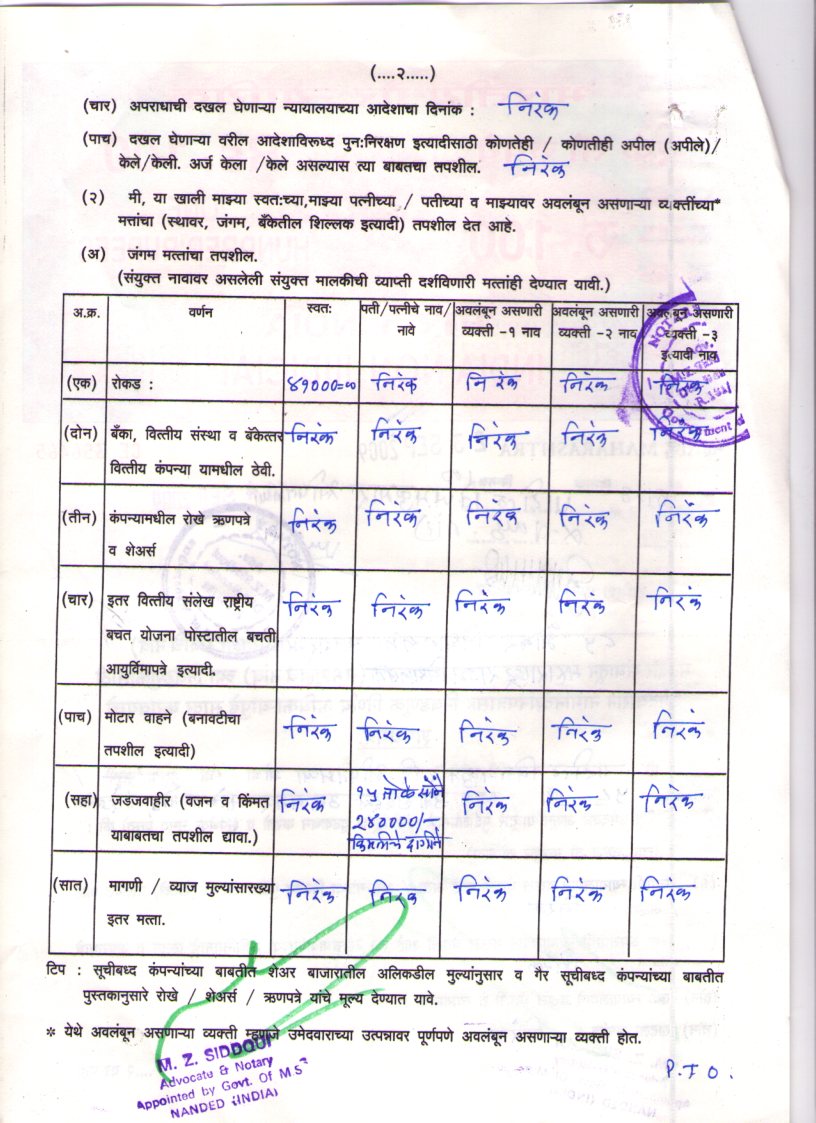 (....२.....)
(चार) अपराधाची दखल घेणाऱ्या न्यायालयाच्या आदेशाचा दिनांक : निरंक
(पाच) दखल घेणाऱ्या वरील आदेशाविरूध्द पुन:निरक्षण इत्यादीसाठी कोणतेही / कोणतीही अपील (अपीले)/
केले/केली. अर्ज केला /केले असल्यास त्या बाबतचा तपशील. निरंक
(२) मी, या खाली माझ्या स्वत:च्या,माझ्या पत्नीच्या / पतीच्या व माझ्यावर अवलंबून असणाऱ्या व्यक्तींच्या*
मत्तांचा (स्थावर, जंगम, बँकेतील शिल्लक इत्यादी) तपशील देत आहे.
(अ) जंगम मत्तांचा तपशील.
(संयुक्त नावावर असलेली संयुक्त मालकीची व्याप्ती दर्शविणारी मत्तांही देण्यात यावी.)
अ.क्र. वर्णन स्वत: पती/पत्नीचे नाव/ अवलंबून असणारी अवलंबून असणारी अवलंबून असणारी
नावे व्यक्ती -१ नाव व्यक्ती -२ नाव व्यक्ती -३
इत्यादी नाव
(एक) रोकड : ४१०००=०० निरंक निरंक निरंक निरंक
(दोन) बँका, वित्तीय संस्था व बँकेत्तर निरंक निरंक निरंक निरंक निरंक
वित्तीय कंपन्या यामधील ठेवी.
(तीन) कंपन्यामधील रोखे ऋणपत्रे निरंक निरंक निरंक निरंक निरंक
व शेअर्स
(चार) इतर वित्तीय संलेख राष्ट्रीय निरंक निरंक निरंक निरंक निरंक
बचत योजना पोस्टातील बचती
आयुर्विमापत्रे इत्यादी.
(पाच) मोटार वाहने (बनावटीचा निरंक निरंक निरंक निरंक निरंक
तपशील इत्यादी)
(सहा) जडजवाहीर (वजन व किंमत निरंक १५ तोळे सोने निरंक निरंक निरंक
याबाबतचा तपशील द्यावा.) २४००००/-
किंमतीचे दागीने
(सात) मागणी / व्याज मुल्यांसारख्या निरंक निरंक निरंक निरंक निरंक
इतर मत्ता.
टिप : सूचीबध्द कंपन्यांच्या बाबतीत शेअर बाजारातील अलिकडील मुल्यांनुसार व गैर सूचीबध्द कंपन्यांच्या बाबतीत
पुस्तकानुसारे रोखे / शेअर्स / ऋणपत्रे यांचे मूल्य देण्यात यावे.
* येथे अवलंबून असणाऱ्या व्यक्ती म्हणजे उमेदवाराच्या उत्पन्नावर पूर्णपणे अवलंबून असणाऱ्या व्यक्ती होत.
M. Z. SIDDQUI
Advocate & Notary
Appointed by Govt. Of M S
NANDED (INDIA)
P. T O.